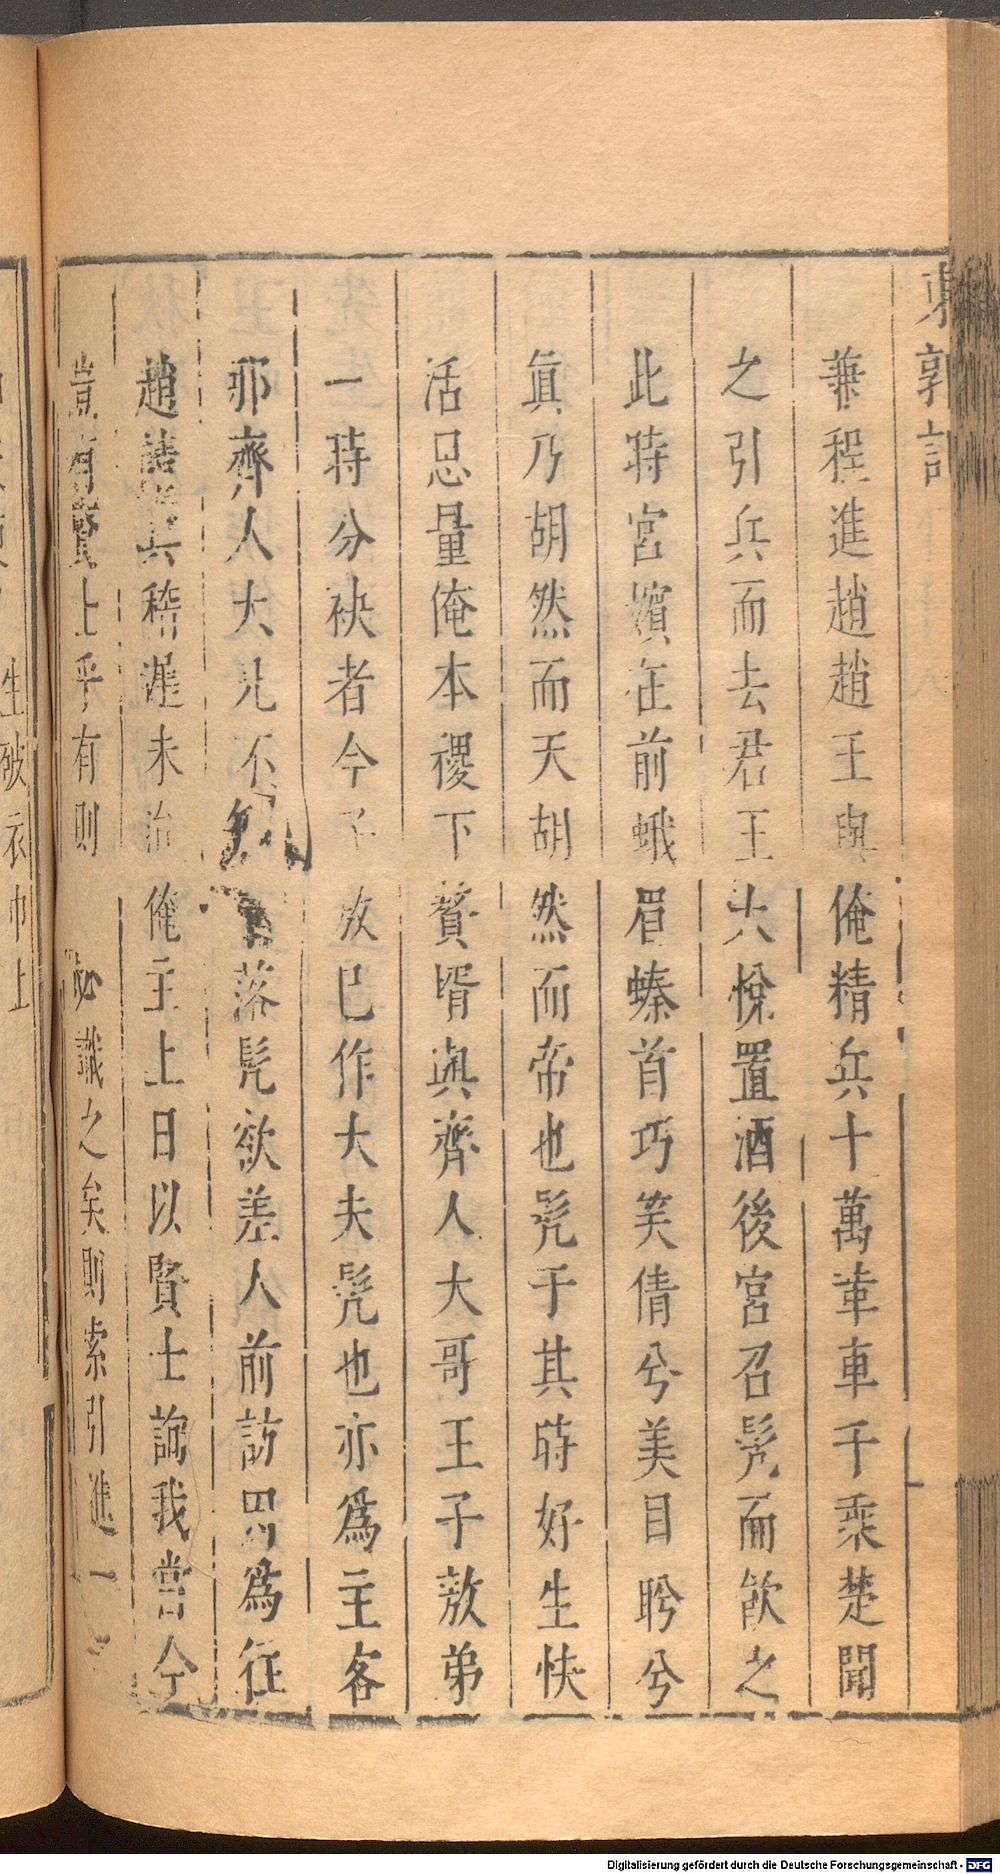 東郭記
兼程進趙趙王與俺精兵十萬革車千乘楚聞
之引兵而去君王大悅置酒後宮召髡而飲之
此時宮嬪在前蛾眉螓首巧笑倩兮美目盻兮
眞乃胡然而天胡然而帝也髡于其時好生快
活思量俺本稷下贅壻與齊人大哥王子敖弟
一時分袂者今子敖已作大夫髡也亦爲主客
那齊人大兄不知 落髡欲差人前訪畧爲征
趙諸兵稽遲未治俺主上日以賢士詢我當今
豈有賢士乎有則 必識之矣則索引進一
生破衣巾上
Digitalisierung gefördert durch die Deutsche Forschungsgemeinschaft - DFG